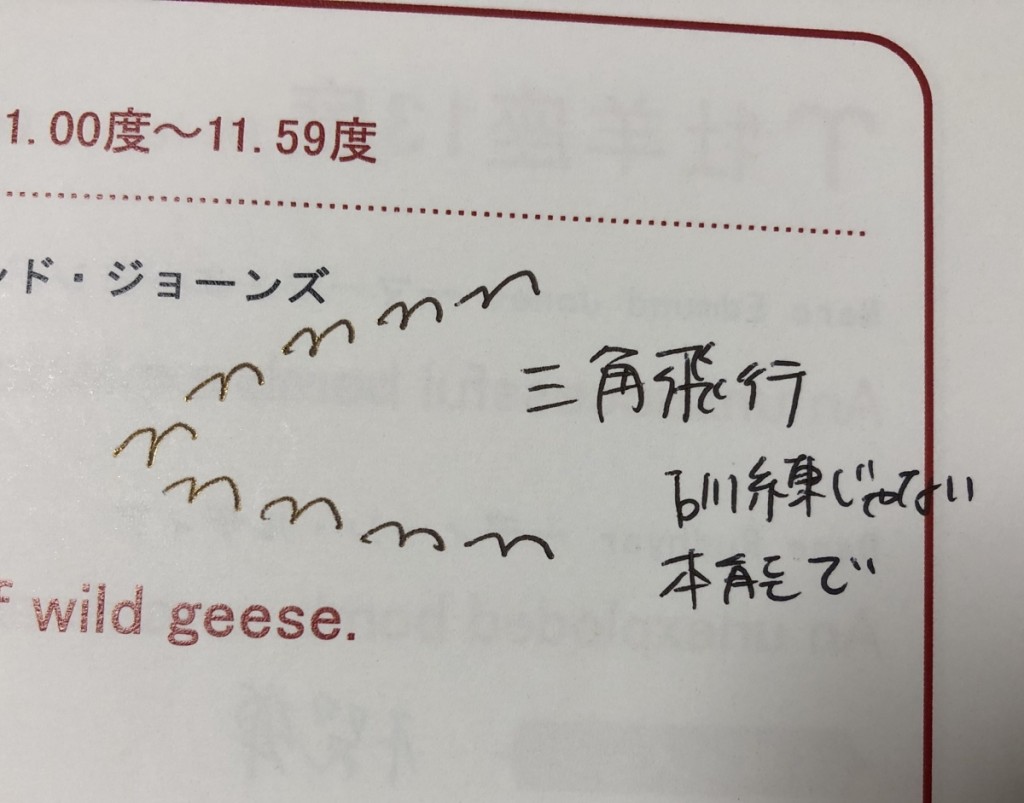 1.00度～11.59度
ンド・ジョーンズ
三角飛行
訓練じゃない
本能で
f wild geese.